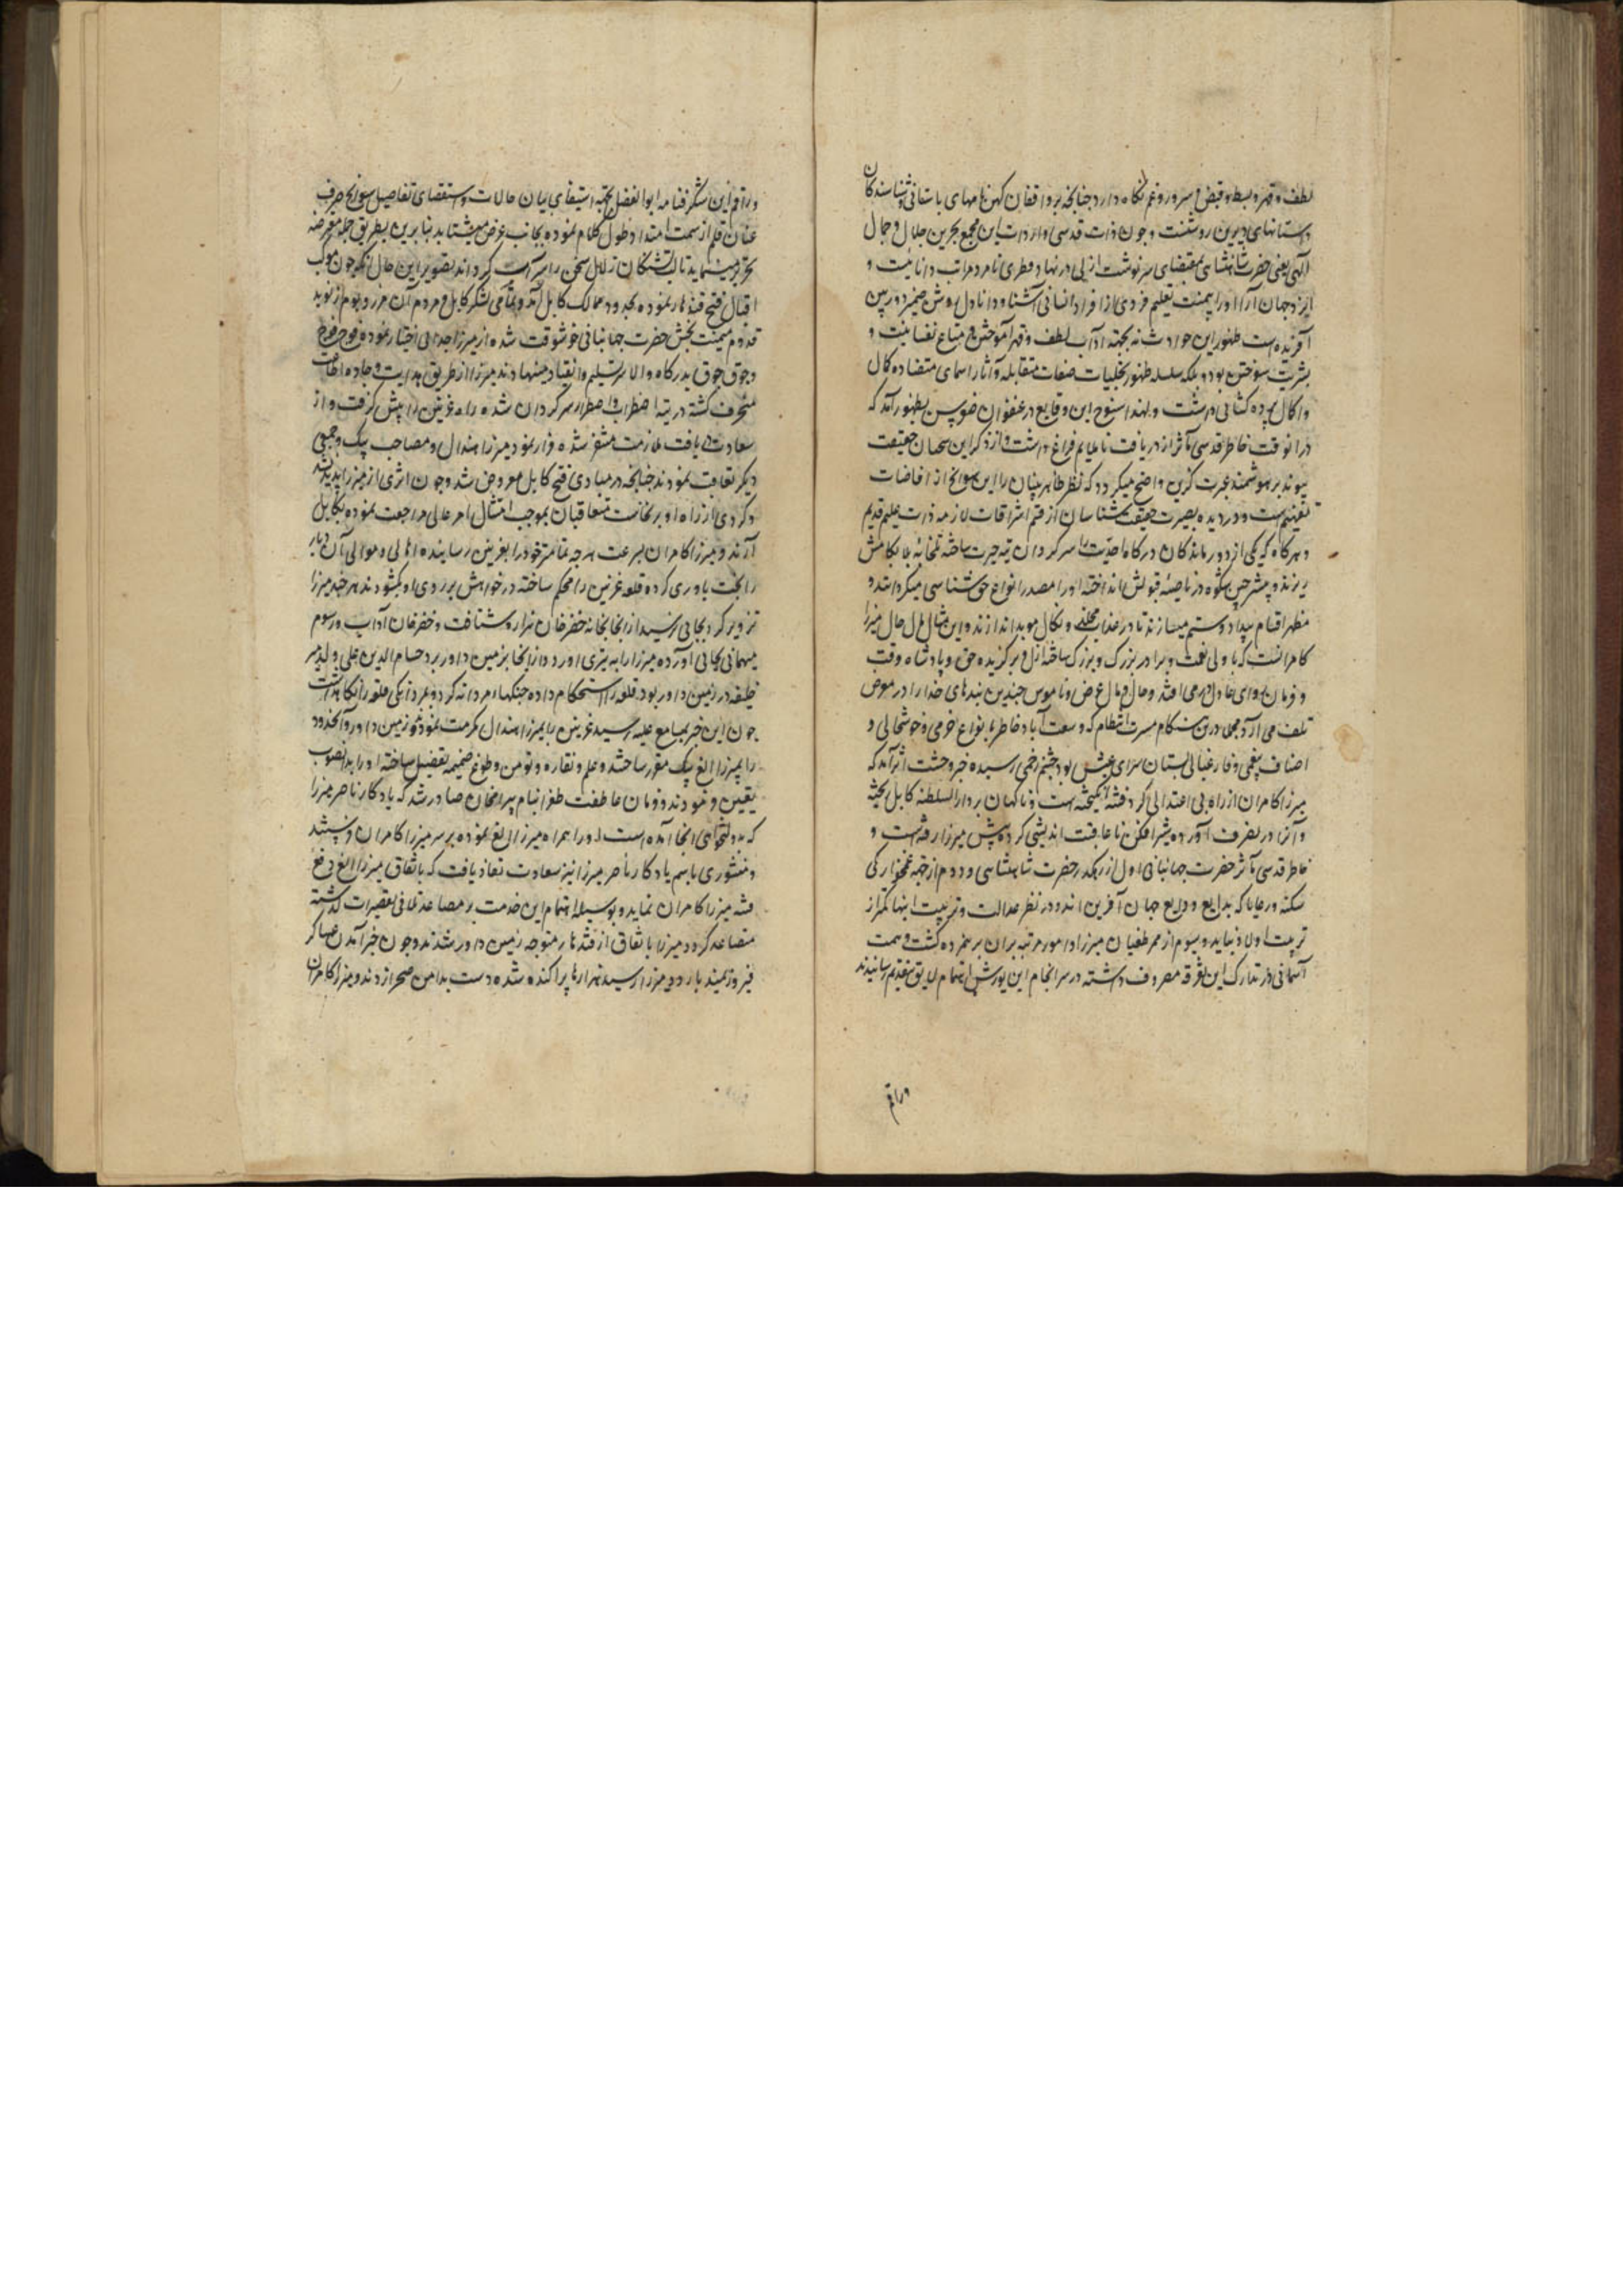 لطف و قهر و بسط و قبض و سرور و غم نگاه دارد چنانچه بر واقفان کهن نامهای باستانی و شناسندگان
داستانهای دیرین روشنست و چون ذات قدسی واردات این مجمع بحرین جلال و جمال
الهی یعنی حضرت شاهنشاهی بمقتضای سرنوشت ازلی در نهاد فطری نامزد مراتب دانائیست و
ایزد جهان آرا او را بیمنت تعلیم فردی از افراد انسانی آشنا و دانا دل روشن ضمیر دوربین
آفریده است ظهور این حوادث نه بجهة آداب لطف و قهر آموختن و متاع نفسانیت و
بشریت سوختن بود بلکه سلسله ظهور تجلیات صفات متقابله و آثار اسمای متضاده کمال
و اکمال پرده کشائی داشت و لهذا سنوح این وقایع در عنفوان بظهور آمد که
در آنوقت خاطر قدسی مآثر از دریافت ناملایم فراغ داشت و از ذکر این سخنان حقیقت
پیوند بر هوشمند عبرت گزین واضح میگردد که نظر ظاهر بینان را این سوانح از افاضات
است و در دیده بصیرت حقیقت شناسان از قسم اشراقات لازمه ذات علیم قدیم
و هرگاه که یکی از دور ماندگان درگاه احدیت را سرگردان تیه حیرت ساخته تلخابه بکامش
ریزند و در ناصیه قبولش انداخته او را مصدر انواع حق ناشناسی میگردانند و
مظهر اقسام بیداد و ستم میسازند تا در عذاب مخلد و نکال موبد اندازند و این مثال حال میرزا
کامرانست که با ولی نعمت و برادر بزرگ و بزرگ ساخته ازل و برگزیده حق و پادشاه وقت
و فرمان روای عادل در می افتد و جان و مال و عرض و ناموس چندین بندهای خدا را در معرض
تلف می آرد مجملا درین هنگام مسرت انتظام که وسعت آباد خاطر بانواع خرمی و خوشحالی و
اصناف بیغمی و فارغبالی بستان سرای عیش بود چشم زخمی رسیده خبر وحشت اثر آمد که
میرزا کامران از راه بی اعتدالی گرد فتنه انگیخته است و ناگهان بر دار السلطنه کابل
و آنرا در تصرف آورده شیرافکن ناعاقبت اندیشی کرده پیش میرزا رفته است و
خاطر قدسی مآثر حضرت جهانبانی اول از رهگذر حضرت شاهنشاهی و دوم از جهة غمخوارگی
سکنه و رعایا که بدایع ودایع جهان آفرین اند و در نظر عدالت و تربیت اینها کمتر از
تربیت اولاد نباید و سیوم از ممر طغیان میرزا و امور مرتبه بر آن بر همزده گشت و همت
آسمانی در تدارک این تفرقه مصروف داشته در سرانجام این یورش اهتمام لایق بتقدیم رسانیدند
وراقم
وراقم این شگرفنامه ابوالفضل بجهة استیفای بیان حالات و استقصای تفاصیل سوانح صرف
عنان قلم از سمت امتداد طول کلام نموده بجانب عرض میشتابد بنابرین بطریق جمله معترضه
تحریر مینماید تا لب تشنگان زلال سخن را سیراب گرداند تصویر این حال آنکه چون موکب
اقبال فتح قندهار نموده بحدود ممالک کابل آمد و تمامی لشکر کابل و مردم آن مرز و بوم از نوید
قدوم میمنت بخش حضرت جهانبانی خوشوقت شده از میرزا جدائی اختیار نموده فوج فوج
و جوق جوق بدرگاه والا سر تسلیم و انقیاد مینهادند میرزا از طریق هدایت و جاده اطاعت
منحرف گشته در تیه اضطراب و اضطرار سرگردان شده راه غزنین را پیش گرفت و از
سعادت دریافت ملازمت متنفر شده فرار نمود میرزا هندال و مصاحب بیک و جمعی
دیگر تعاقب نمودند چنانچه در مبادی فتح کابل معروض شد و چون اثری از میرزا پدید نشد
و گردی از راه او بر نخاست متعاقبان بموجب امتثال امر عالی مراجعت نموده بکابل
آمدند و میرزا کامران بسرعت هرچه تمامتر خود را بغزنین رسانیده اهالی و موالی آن دیار
را بخت یاوری کرده قلعه غزنین را محکم ساخته در خواهش بر روی او نگشودند هر چند میرزا
تزویر کرد بجائی نرسید از انجا بخانه خضرخان هزاره شتافت و خضرخان آداب و رسوم
میهمانی بجای آورده میرزا را به تیری آورد و از انجا بزمین داور برد حسام الدین علی ولد میر
خلیفه در زمین داور بود قلعه را استحکام داده جنگهای مردانه کرد و بمردانگی قلعه را نگاهداشت
چون این خبر بمسامع علیه رسید غزنین را بمیرزا هندال مرحمت نمودند و زمین داور و آنحدود
را بمیرزا الغ بیک مقرر ساختند و علم و نقاره و تومن و طوغ ضمیمه تفضل ساخته او را بدانصوب
تعیین فرمودند و فرمان عاطفت طغرا بنام بیرامخان صادر شد که یادگار ناصر میرزا
که بدولتخواهی انجا آمده است او را همراه میرزا الغ نموده بر سر میرزا کامران فرستند
و منشوری باسم یادگار ناصر میرزا نیز سعادت نفاذ یافت که باتفاق میرزا الغ دفع
فتنه میرزا کامران نماید و بوسیله اهتمام این خدمت بر مصاعد تلافی تقصیرات گذشته
متصاعد گردد میرزایان باتفاق از قندهار متوجه زمین داور شدند و چون خبر آمدن عساکر
فیروزیمند باردوی میرزا رسید هزارها پراکنده شده دست بدامن صحرا زدند و میرزا کامران